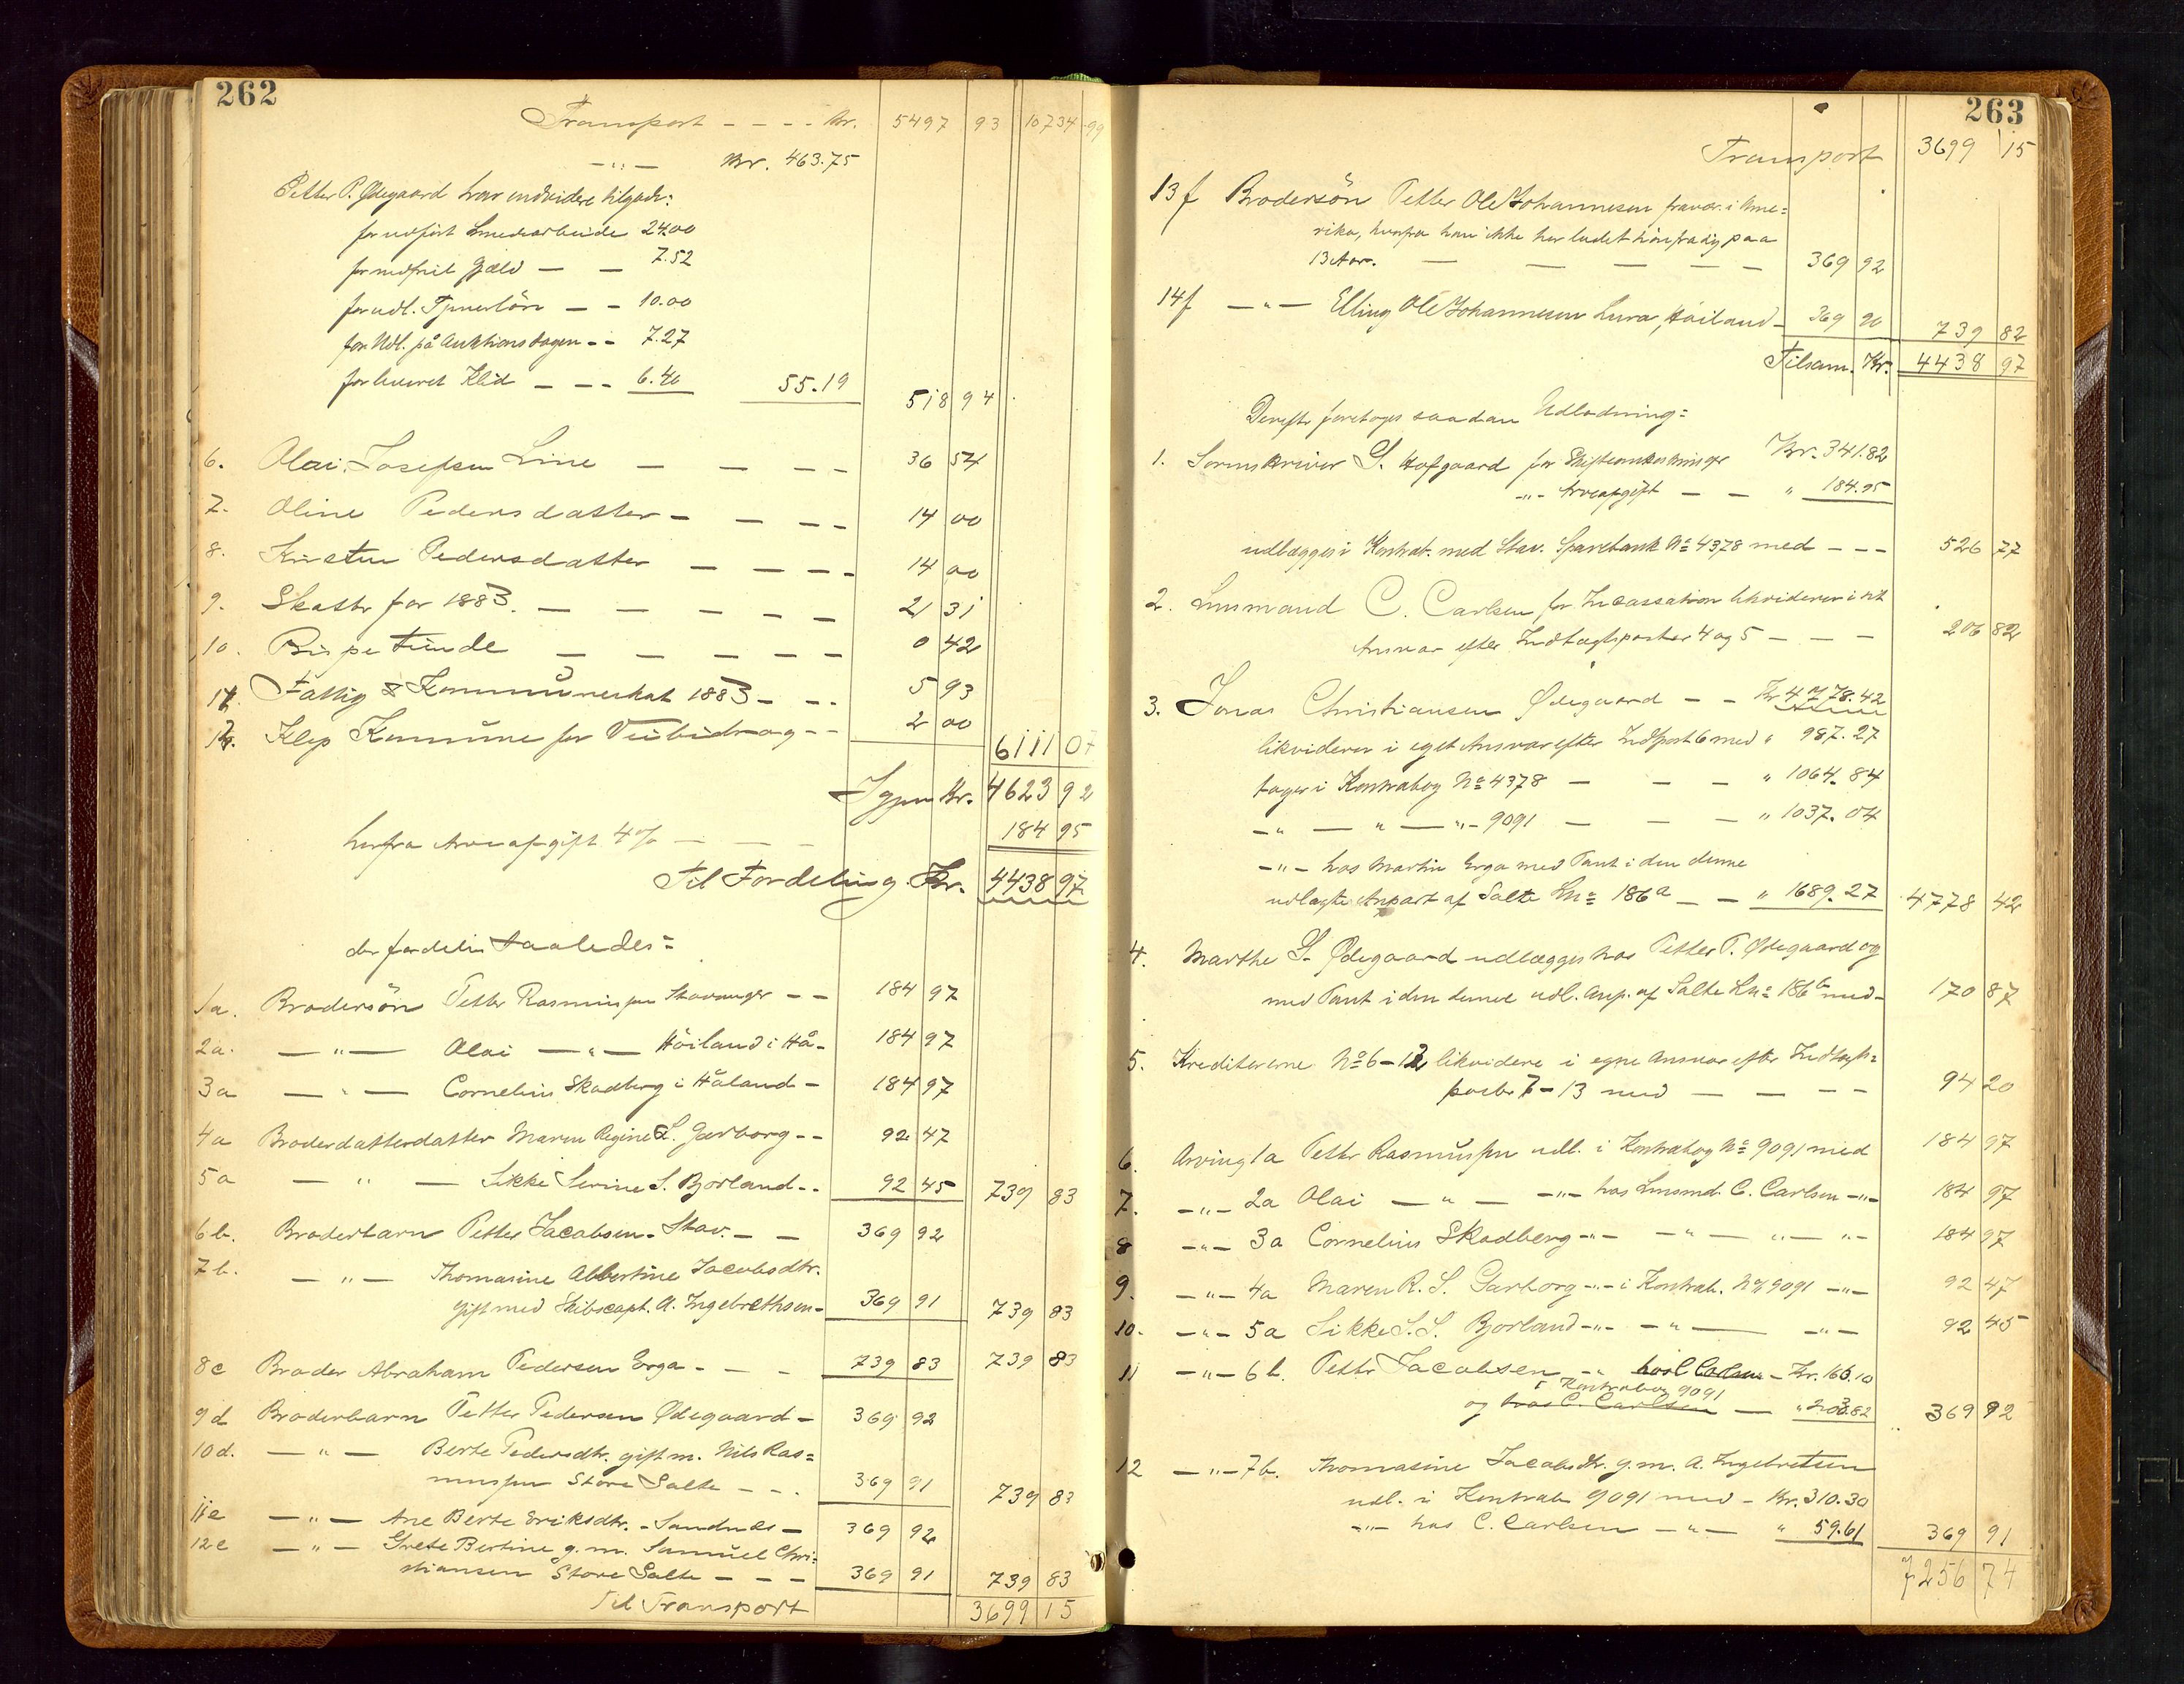 262
Transport - - - - Kr. 5497 93 10734 99
- " - Kr. 463.75
Petter P. Ødegaard har endvidere tilgode:
for udført Smedearbeide 24.00
for nedfeit Gjæld - - 7.52
for udl. Tjenerløn - - 10.00
for Udl. på Auktionsdagen - - 7.27
for leveret Klid - - - 6.40 55.19 518 94
6. Olai Josefsen Line - - - - 36 54
7. Oline Pedersdatter - - - - 14 00
8. Kirsten Pedersdatter - - - - 14 00
9. Skatter for 1883. - - - - - 21 31
10. Bispetiende - - - - - 0 42
11. Fattig & Kommuneskat 1883 - - - 5 93
12. Klep Kommune for Veibidrag - - 2 00 6111 07
Igjen Kr. 4623 92
herfra Arveafgift 4% - - - 184 95
Til Fordeling. Kr. 4438 97
der fordeles saaledes:
1a. Brodersön Petter Rasmussen Stavanger - - 184 97
2a. - " - Olai - " - Höiland i Hå - 184 97
3a - " - Cornelius Skadberg i Håland - 184 97
4a Broderdatterdatter Maren Regine S. Garborg - - 92 47
5a - " - Sikke Serine S. Bjorland - - 92 45 739 83
6b. Broderbarn Petter Jacobsen - Stav. - - 369 92
7b. - " - Thomasine Albertine Jacobsdtr.
gift med Skibscapt. A. Ingebrethsen - 369 91 739 83
8c Broder Abraham Pedersen Erga - - - 739 83 739 83
9d Broderbarn Petter Pedersen Ødegaard - 369 92
10d. - " - Berte Pedersdtr. gift m. Nils Ras=
mussen Store Salte - - - 369 91 739 83
11e - " - Ane Berte Eriksdtr. - Sandnes - 369 92
12e - " - Grete Bertine g. m. Samuel Chri=
stiansen Store Salte - - - 369 91 739 83
Til Transport 3699 15
263
Transport 3699 15
13f Brodersön Petter Ole Johannesen fravær. i Ame=
rika, hvorfra han ikke har ladet höre fra sig paa
13 Aar. - - - - - 369 92
14f - " - Elling Ole Johannesen Lura, Höiland - 369 90 739 82
Tilsam. Kr. 4438 97
Derefter foretoges saadan Udlodning:
1. Sorenskriver S. Hofgaard for Skifteomkostninger Kr. 341.82
- " - Arveafgift - - " 184.95
udlægges i Kontrab. med Stav. Sparebank No 4378 med - - - 526 77
2. Lensmand C. Carlsen for Incassation likviderer i sit
Ansvar efter Indtægtsposter 4 og 5 - - - 206 82
3. Jonas Christiansen Ødegaard - - Kr 4778.42
likviderer i eget Ansvar efter Indpost 6 med " 987.27
tager i Kontrabog No 4378 - - - " 1064.84
- " - " - " - 9091 - - - " 1037.04
- " - hos Martin Erga med Pant i den denne
udlagte Anpart af Salte Ln= 186a - - " 1689.27 4778 42
4. Marthe S. Ødegaard udlægges hos Petter P. Ødegaard og
med Pant i den denne udl. Anp. af Salte Ln= 186b med - 170 87
5. Krediterne No 6 - 12 likvidere i egne Ansvar efter Indtægts=
poster 7 - 13 med - - - - 94 20
6. Arving 1a Petter Rasmussen udl. i Kontrabog No 9091 med 184 97
7. - " - 2a Olai - " - - " - hos Lensmd. C. Carlsen - " - 184 97
8 - " - 3a Cornelius Skadberg - " - - " - " - " - 184 97
9. - " - 4a Maren R. S. Garborg - " - i Kontrab. No 9091 - " - 92 47
10. - " - 5a Sikke S. S. Bjorland - " - - " - - " - 92 45
11 - " - 6b. Petter Jacobsen - " hos C Carlsen - Kr. 166.10
i Kontrabog 9091
og hos C. Carlsen - " 203.82 369 92
12 - " - 7b. Thomasine Jacobsdtr. g. m. A. Ingebretsen
udl. i Kontrab 9091 med - Kr. 310.30
- " - hos C. Carlsen - " - " 59.61 369 91
7256 74